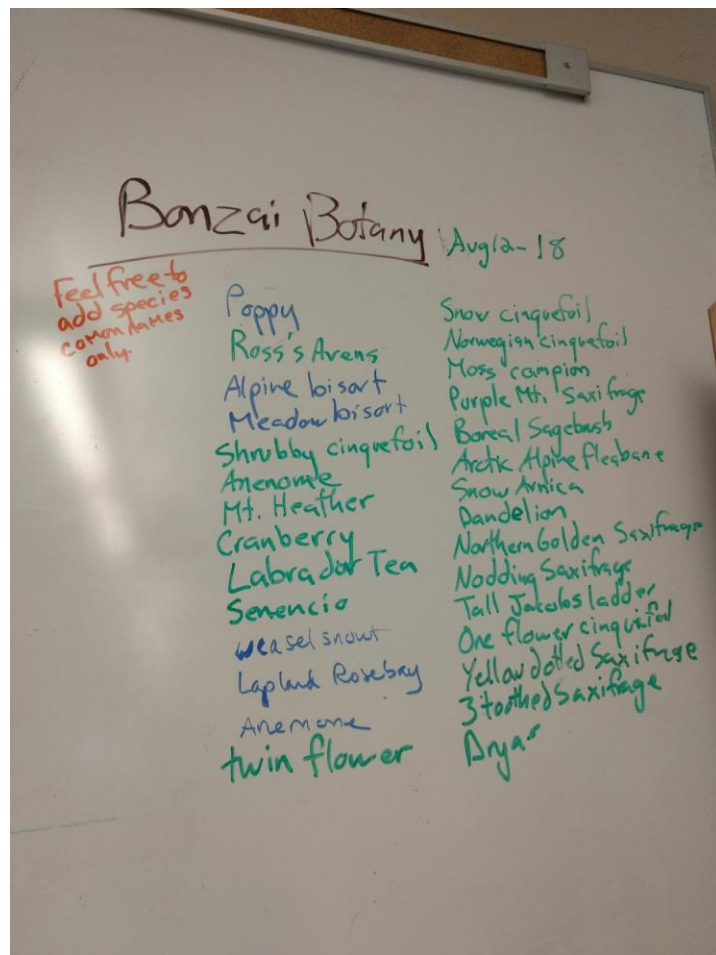 Bonzai Botany
Aug 12-18
Feel free to
add species
comon names
only.
Poppy
Ross's Avens
Alpine bisort
Meadow bisort
Shrubby cinquefoil
Anenome
Mt. Heather
Cranberry
Labrador Tea
Senencio
weasel snowt
Lapland Rosebay
Anemone
twin flower
Snow cinquefoil
Norwegian cinquefoil
Moss campion
Purple Mt. Saxifrage
Boreal Sagebush
Arctic Alpine fleabane
Snow Arnica
Dandelion
Northern Golden Saxifrage
Nodding Saxifrage
Tall Jacobs ladder
One flower cinquefoil
Yellow dotted Saxifrage
3 toothed Saxifrage